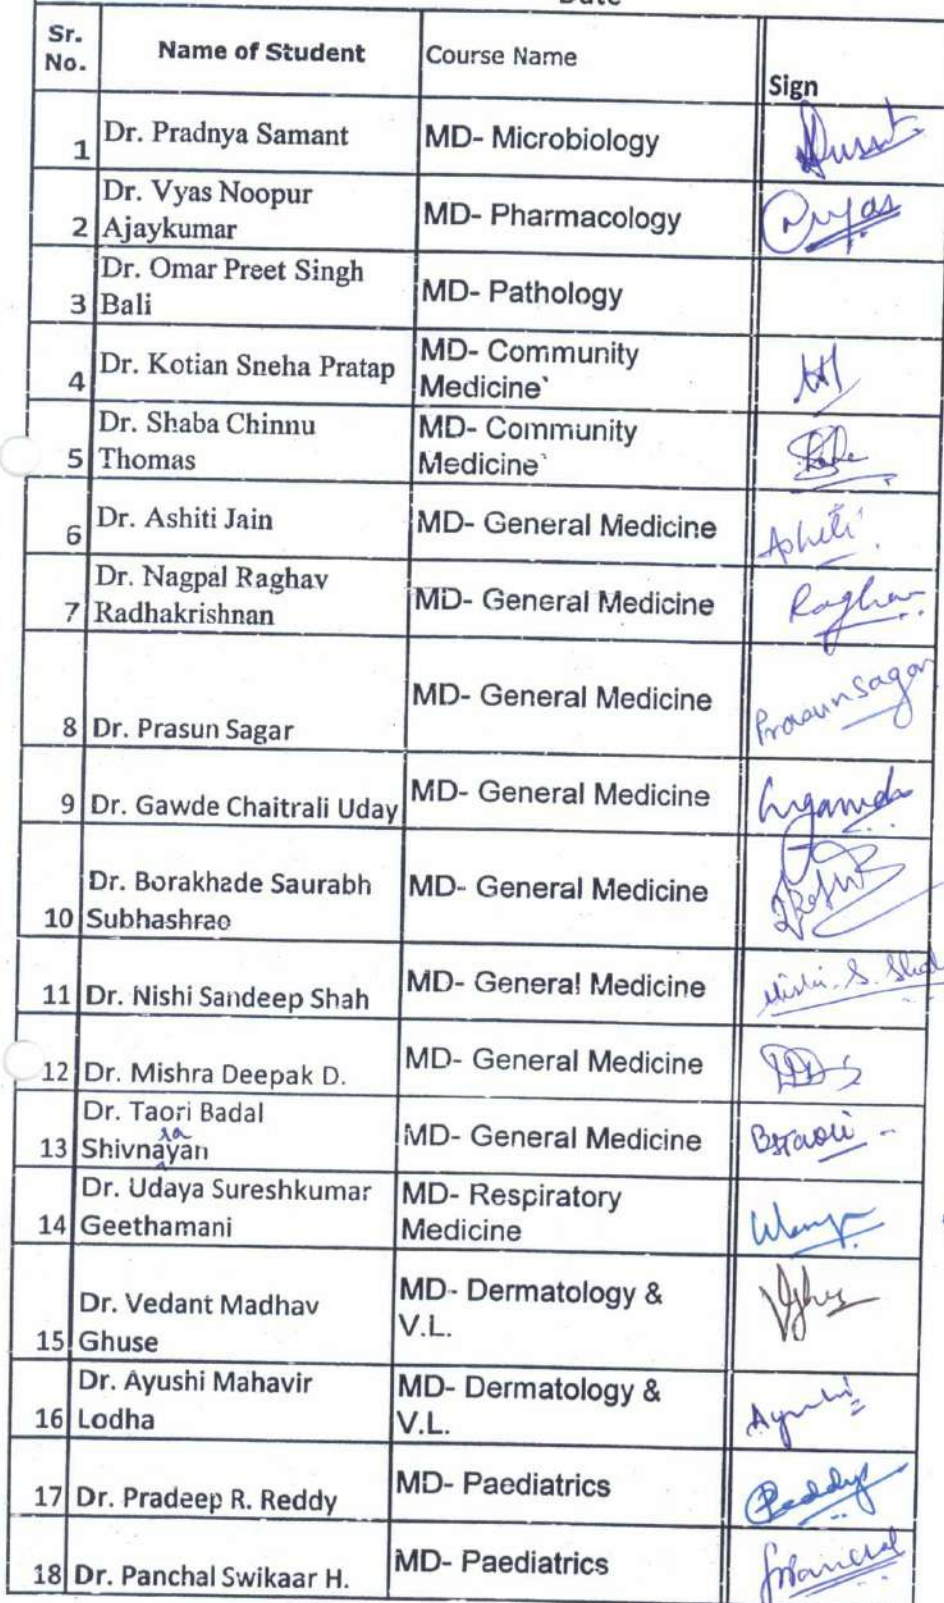 Date
Sr. No. Name of Student Course Name Sign
1 Dr. Pradnya Samant MD- Microbiology
2 Dr. Vyas Noopur Ajaykumar MD- Pharmacology
3 Dr. Omar Preet Singh Bali MD- Pathology
4 Dr. Kotian Sneha Pratap MD- Community Medicine`
5 Dr. Shaba Chinnu Thomas MD- Community Medicine`
6 Dr. Ashiti Jain MD- General Medicine Ashiti
7 Dr. Nagpal Raghav Radhakrishnan MD- General Medicine Raghav
8 Dr. Prasun Sagar MD- General Medicine Prasun Sagar
9 Dr. Gawde Chaitrali Uday MD- General Medicine
10 Dr. Borakhade Saurabh Subhashrao MD- General Medicine
11 Dr. Nishi Sandeep Shah MD- General Medicine Nishi. S. Shah
12 Dr. Mishra Deepak D. MD- General Medicine
13 Dr. Taori Badal Shivnarayan MD- General Medicine BSTaori
14 Dr. Udaya Sureshkumar Geethamani MD- Respiratory Medicine
15 Dr. Vedant Madhav Ghuse MD- Dermatology & V.L.
16 Dr. Ayushi Mahavir Lodha MD- Dermatology & V.L. Ayushi
17 Dr. Pradeep R. Reddy MD- Paediatrics Reddy
18 Dr. Panchal Swikaar H. MD- Paediatrics